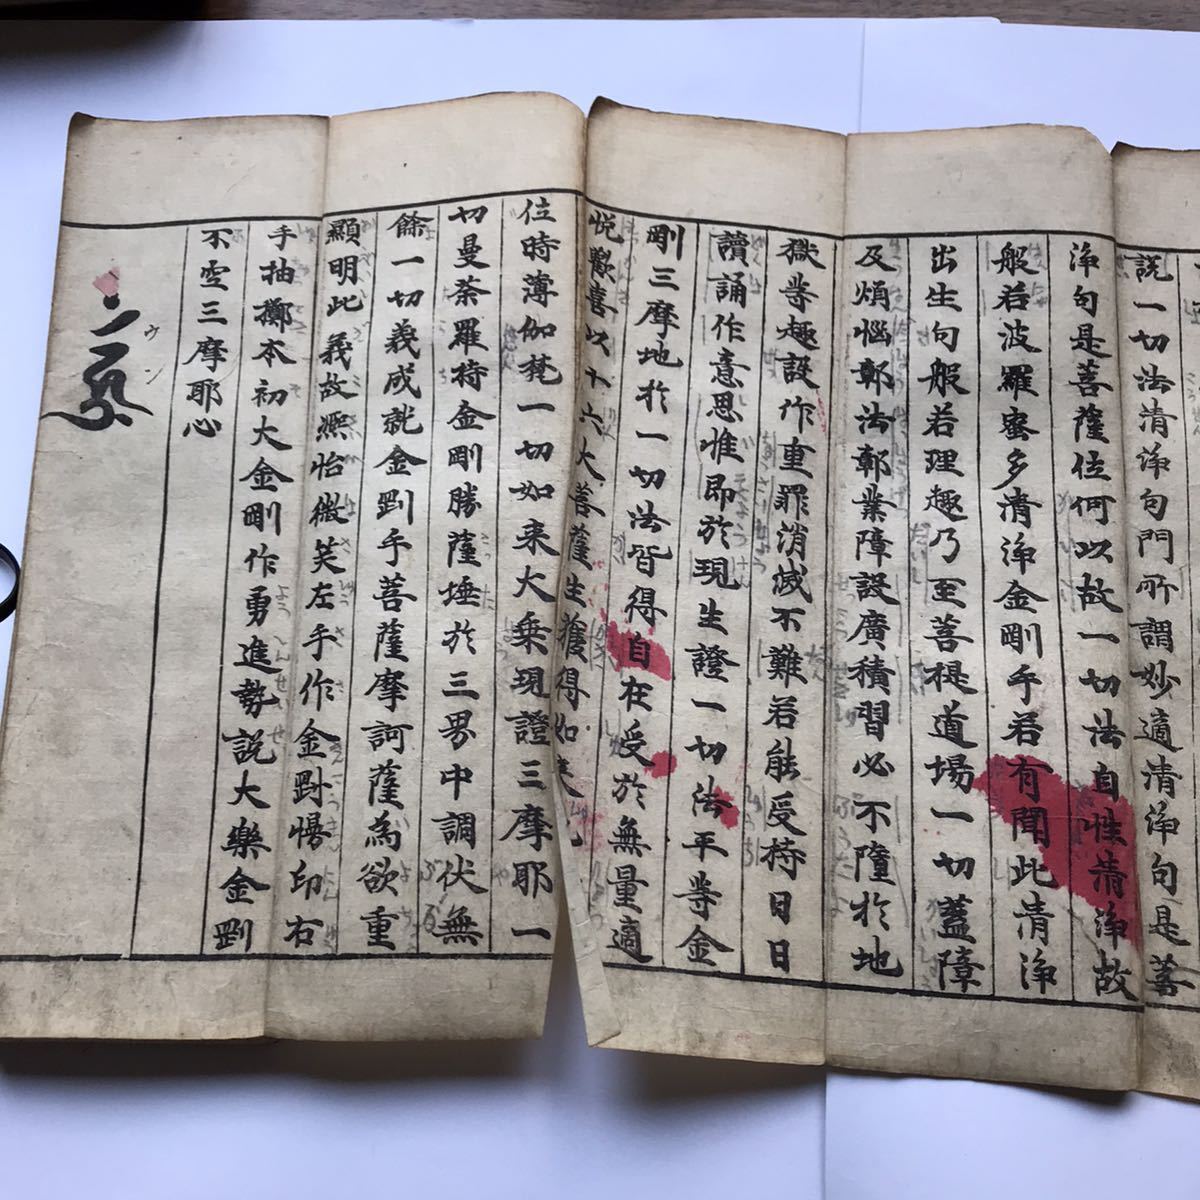 説一切法清浄句門所謂妙適清浄句是菩
浄句是菩薩位何以故一切法自性清浄故
般若波羅蜜多清浄金剛手若有聞此清浄
出生句般若理趣乃至菩提道場一切蓋障
及煩悩鄣法鄣業障設廣積習必不墮於地
獄等趣設作重罪消滅不難若能受持日日
讀誦作意思惟即於現生證一切法平等金
剛三摩地於一切法皆得自在受於無量適
悦歡喜以十六大菩薩生獲得如来
位時薄伽梵一切如来大乗現證三摩耶一
切曼荼羅持金剛勝薩埵於三界中調伏無
餘一切義成就金剛手菩薩摩訶薩為欲重
顯明此義故熈怡微笑左手作金剛慢印右
手抽擲本初大金剛作勇進勢説大樂金剛
不空三摩耶心
ウン